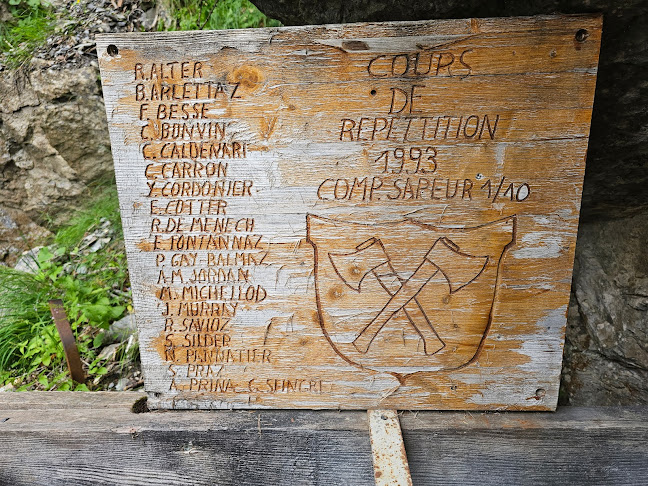 R. ALTER
B. ARLETTAZ
F. BESSE
C. BONVIN
C. CALDENARI
C. CARRON
Y. CORDONIER
E. COTTER
R. DE MENECH
E. FONTANNAZ
P. GAY BALMAZ
A.M. JORDAN
M. MICHELLOD
J. MURRAY
R. SAVIOZ
S. SILDER
N. PANNATIER
S. PRAZ
A. PRINA C.
COURS
DE
REPETTITION
1993
COMP. SAPEUR 1/10